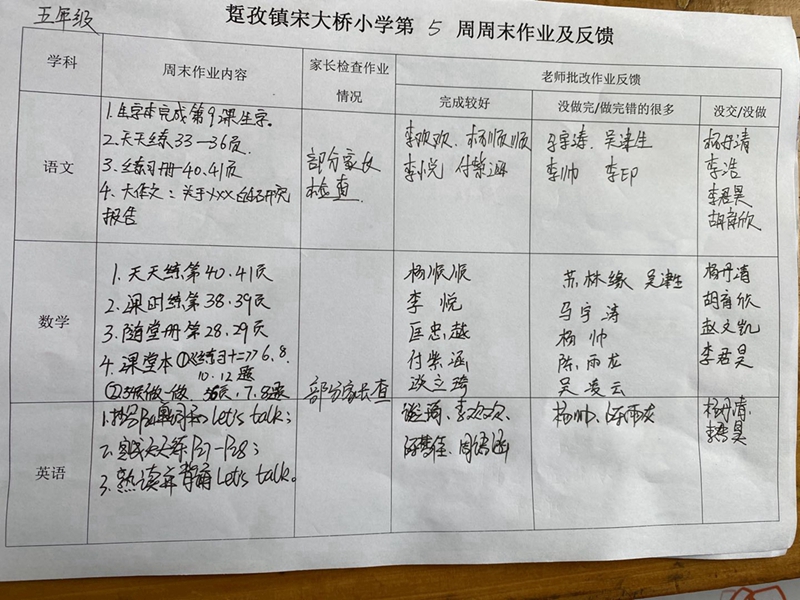 五年级
踅孜镇宋大桥小学第 5 周周末作业及反馈
学科
周末作业内容
家长检查作业
情况
老师批改作业反馈
完成较好
没做完/做完错的很多
没交/没做
语文
1.生字本完成第9课生字。
2.天天练33—36页.
3.练习册-40.41页
4.大作文：关于xxx的研究
报告
部分家长
检查.
李欢欢、杨顺顺
李悦 付紫涵
马宇涛、吴津生
李帅 李印
杨丹清
李浩
李君昊
胡育欣
数学
1.天天练第40.41页
2.课时练第38.39页
3.随堂册第28.29页
4.课堂本①《练习十二》6.8.
10.12题
7.8题
部分家长查
杨顺顺
李悦
匡忠越
付紫涵
苏林缘 吴津生
马宇涛
杨帅
陈雨龙
吴凌云
杨丹清
胡育欣
赵文凯
李君昊
英语
Let's talk;
2.完成天天练P27—P28;
3.熟读并背诵Let's talk。
李欢欢、
周语涵
杨帅、陈雨龙
杨丹清、
李君昊